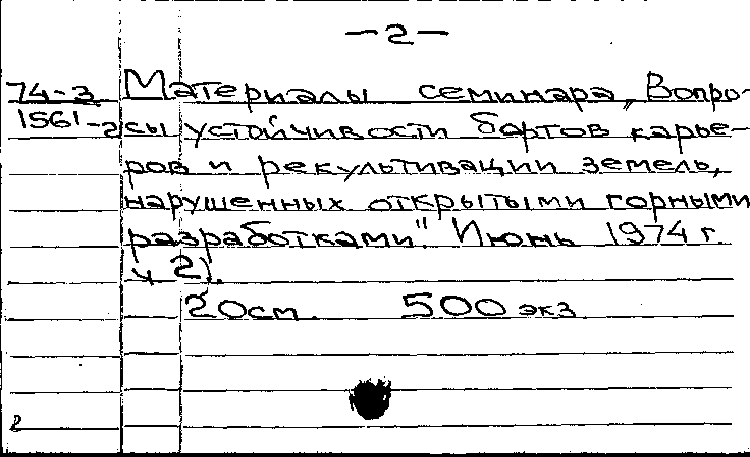 — 2 —
74-3 Материалы семинара „Вопро-
1561-2 сы устойчивости бортов карье-
ров и рекультивации земель,
нарушенных открытыми горными
разработками". Июнь 1974 г.
ч 2).
20 см. 500 экз
2